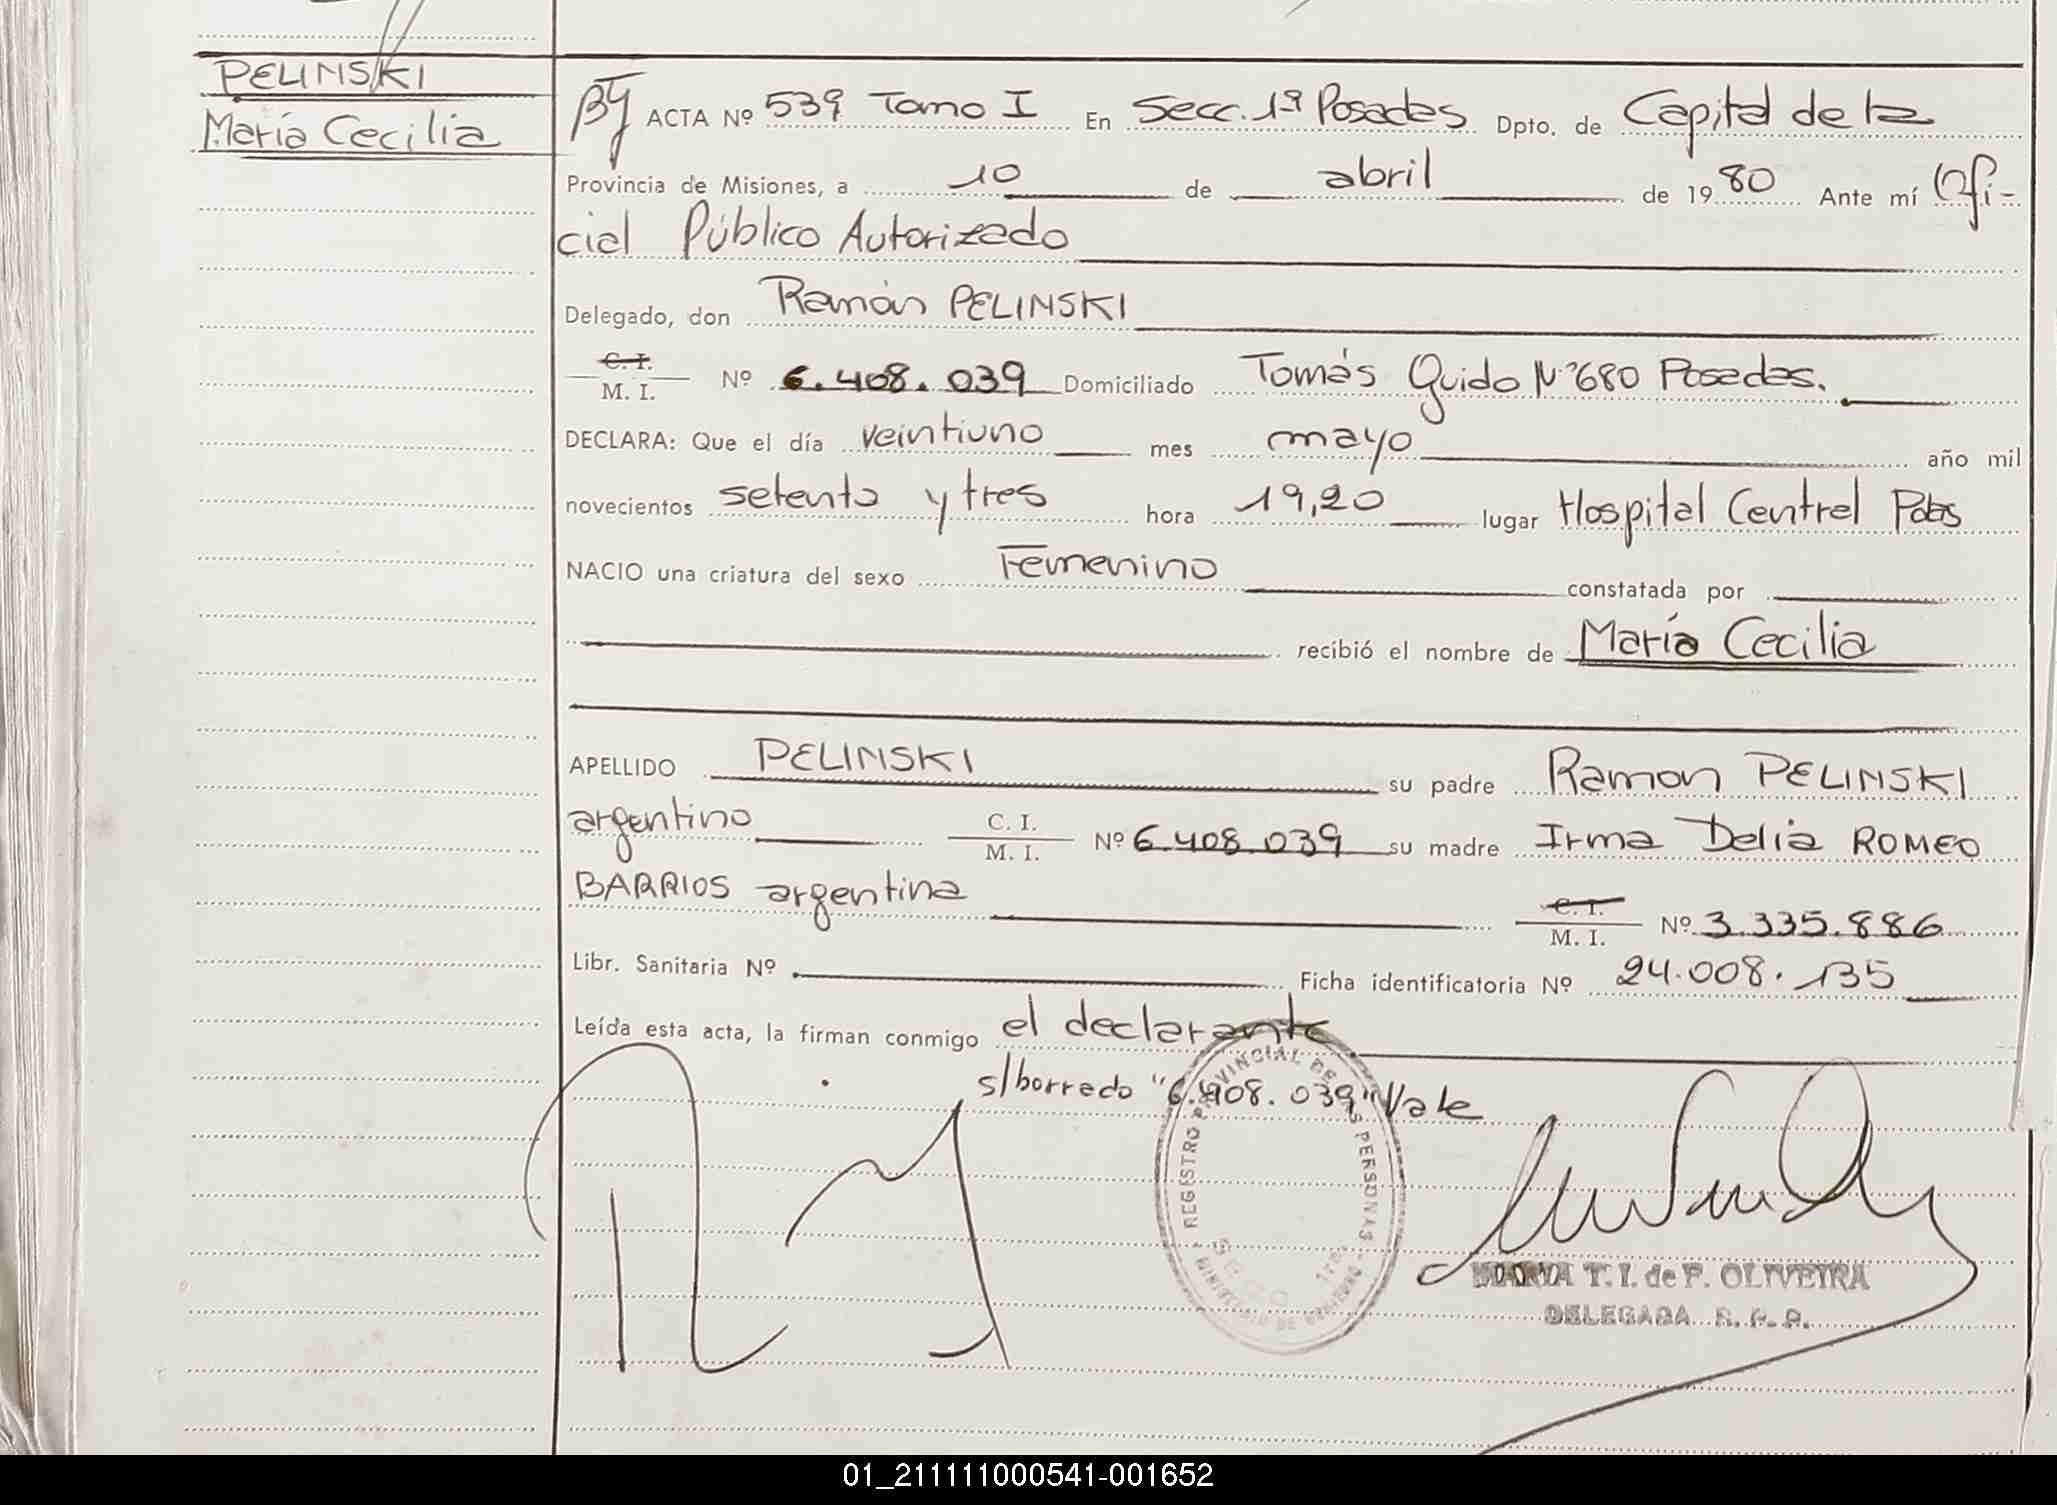 PELINSKI
María Cecilia
ACTA Nº 539 Tomo I En Secc. 1ª Posadas Dpto. de Capital de la
Provincia de Misiones, a 10 de abril de 1980 Ante mí Ofi-
cial Público Autorizado
Delegado, don Ramón PELINSKI
C. I.
M. I. Nº 6.408.039 Domiciliado Tomás Guido Nº 680 Posadas.
DECLARA: Que el día veintiuno mes mayo año mil
novecientos setenta y tres hora 19,20 lugar Hospital Central Pdas
NACIO una criatura del sexo Femenino constatada por
recibió el nombre de María Cecilia
APELLIDO PELINSKI su padre Ramon PELINSKI
argentino C. I. M. I. Nº 6.408.039 su madre Irma Delia ROMEO
BARRIOS argentina C. I. M. I. Nº 3.335.886
Libr. Sanitaria Nº Ficha identificatoria Nº 24.008.135
Leída esta acta, la firman conmigo el declarante
s/borrado "6.408.039" Vale
REGISTRO PROVINCIAL DE LAS PERSONAS
MINISTERIO DE GOBIERNO
MARIA T. I. de F. OLIVEIRA
DELEGADA R. P. P.
01_211111000541-001652